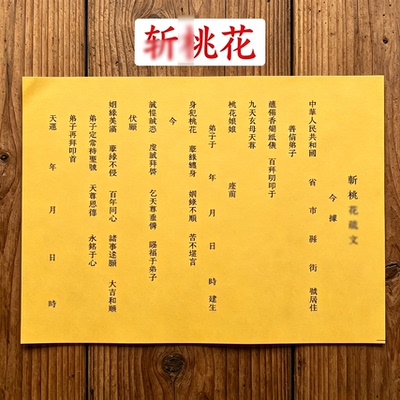 斩桃花
斬桃花疏文
今據
中華人民共和國 省 市 縣 街 號居住
善信弟子
謹備香燭紙儀 百拜叩叩于
九天玄母天尊
桃花娘娘 座前
弟子于 年 月 日 時 建生
身犯桃花 孽緣纏身 姻緣不順 苦不堪言
今
誠惶誠恐 虔誠拜啓 乞天尊垂憐 賜福于弟子
伏願
姻緣美滿 孽緣不侵 百年同心 諸事遂願 大吉和順
弟子定常持聖號 天尊恩德 永銘于心
弟子再拜叩首
天運 年 月 日 時